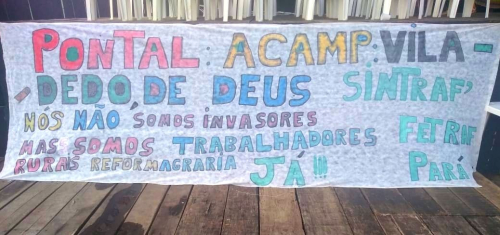 PONTAL: ACAMP: VILA-
-DEDO DE DEUS SINTRAF'
NÓS NÃO, SOMOS INVASORES
MAS SOMOS TRABALHADORES FETRAF
RURAS REFORMAGRARIA JÁ!!! PARÁ